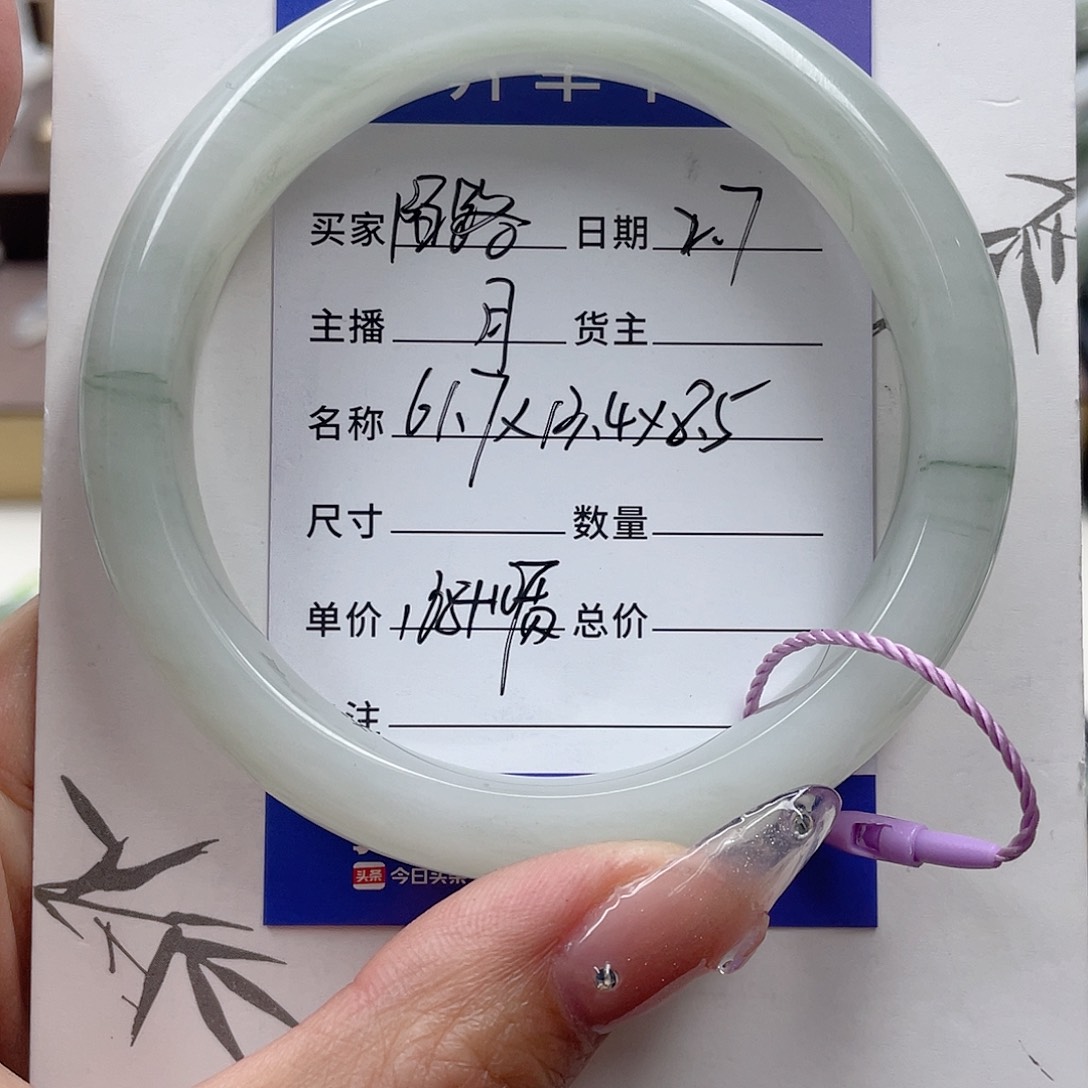 买家 日期 2.7
主播 月 货主
名称 61.7×13.4×8.5
尺寸 数量
单价 总价
注
头条 今日头条